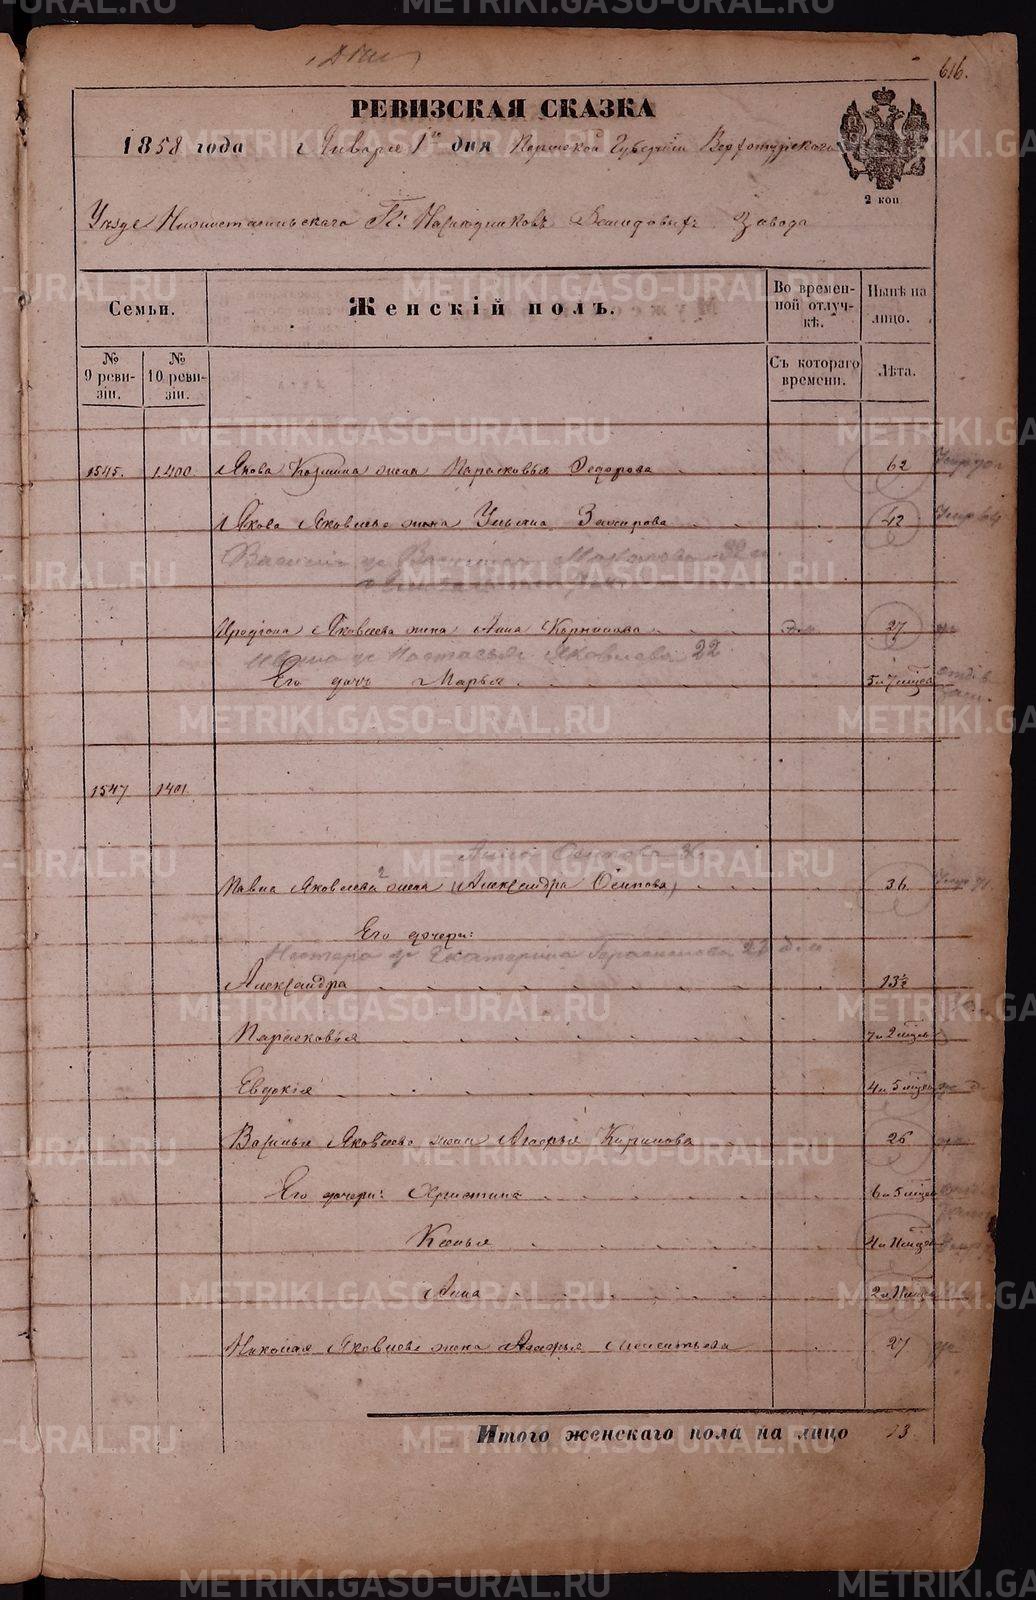 616.
РЕВИЗСКАЯ СКАЗКА
1858 года Января 1го дня Пермской Губернии Верхотурскаго
2 коп
Уезде Нижнетагильскаго Гг. Наследниковъ Демидовыхъ Завода
Семьи. Женскій полъ. Во временной отлучкѣ. Нынѣ на лицо.
№ 9 ревизіи. № 10 ревизіи. Съ котораго времени. Лѣта.
1545. 1400 Якова Козмина жена Парасковья Федорова 62
Якова Яковлева жена Ульяна Захарова 42
Василія
Иродіона Яковлева жена Анна Корнилова 27
Настасья Яковлева 22
Его дочь Марья 5 и 7 мцев
1547 1401
Анна Осипова
Павла Яковлева 2 жена (Александра Осипова) 36
Его дочери:
Нестера Екатерина Герасимова
Александра 13½
Парасковья 7 и 2 мцев
Евдокія 4 и 5 мцев
Василья Яковлева жена Агафья Кирилова 26
Его дочери: Христина 6 и 5 мцев
Ксенья 4 и 11 мцев
Анна 2 и 11 мцев
Николая Яковлева жена Агафья 27
Итого женскаго пола на лицо 13
METRIKI.GASO-URAL.RU